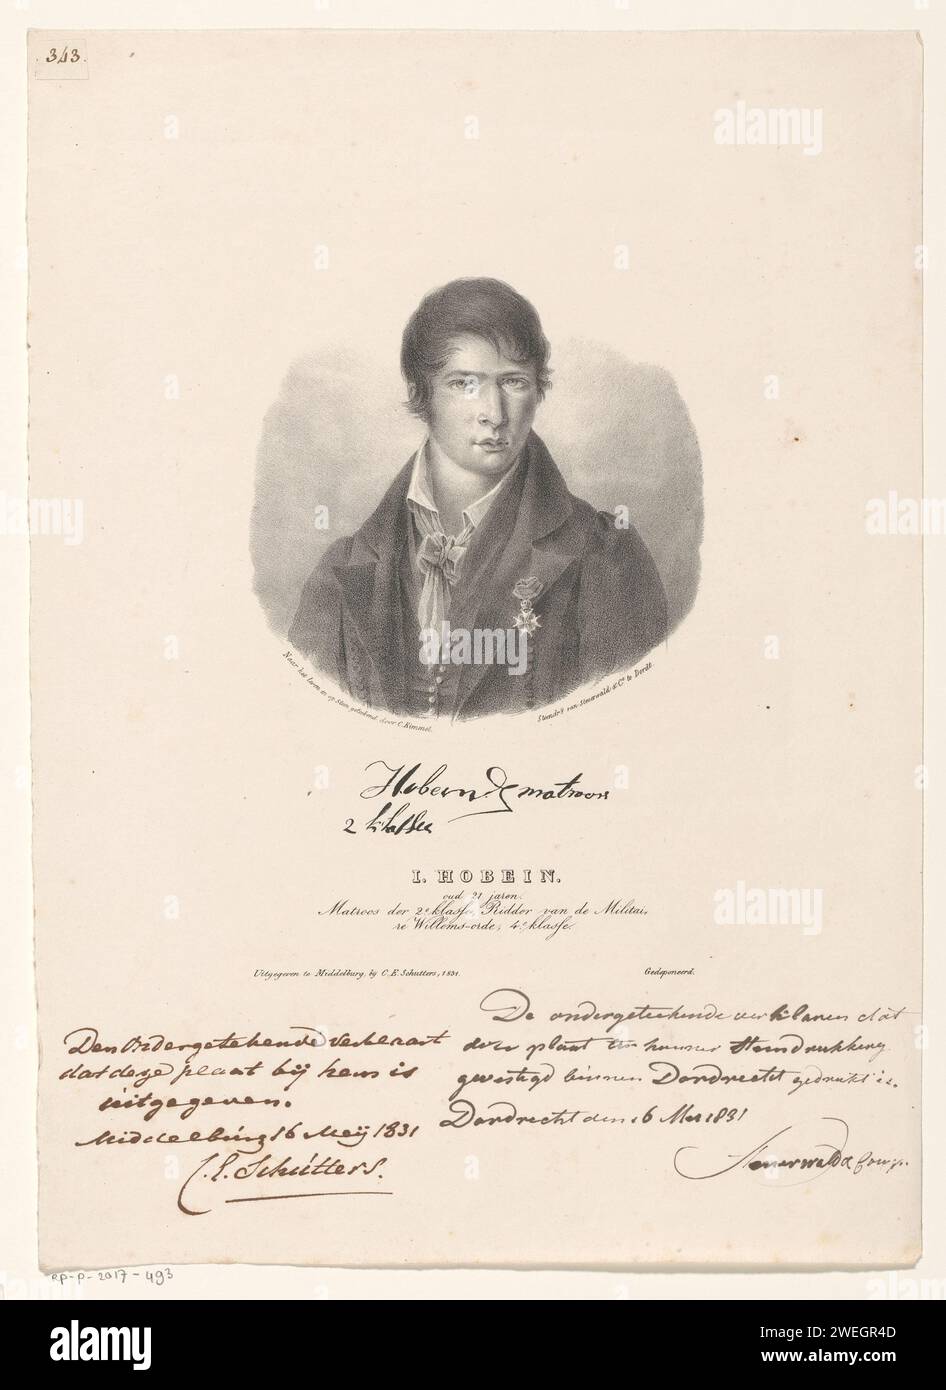 343.
Naar het leven en op Steen getekend door C. Kimmel.
Steendrk van Steuerwald & Co. te Dordt.
Hobein matroos
2 klasse
I. HOBEIN.
oud 21 jaren.
Matroos der 2e klasse, Ridder van de Militai,
re Willems-orde, 4e klasse.
Uitgegeven te Middelburg, by C. E. Schutters, 1831.
Gedeponeerd.
Den Ondergetekende verklaart
dat deze plaat bij hem is
uitgegeven.
Middelburg 16 Meij 1831
C. E. Schutters.
De ondergeteekende verklaren dat
deze plaat hunner Steendrukkerij
gevestigd binnen Dordrecht gedrukt is.
Dordrecht den 16 Mei 1831
Steuerwald & Comp.
RP-P-2017-493
alamy
Image ID: 2WEGR4D
www.alamy.com